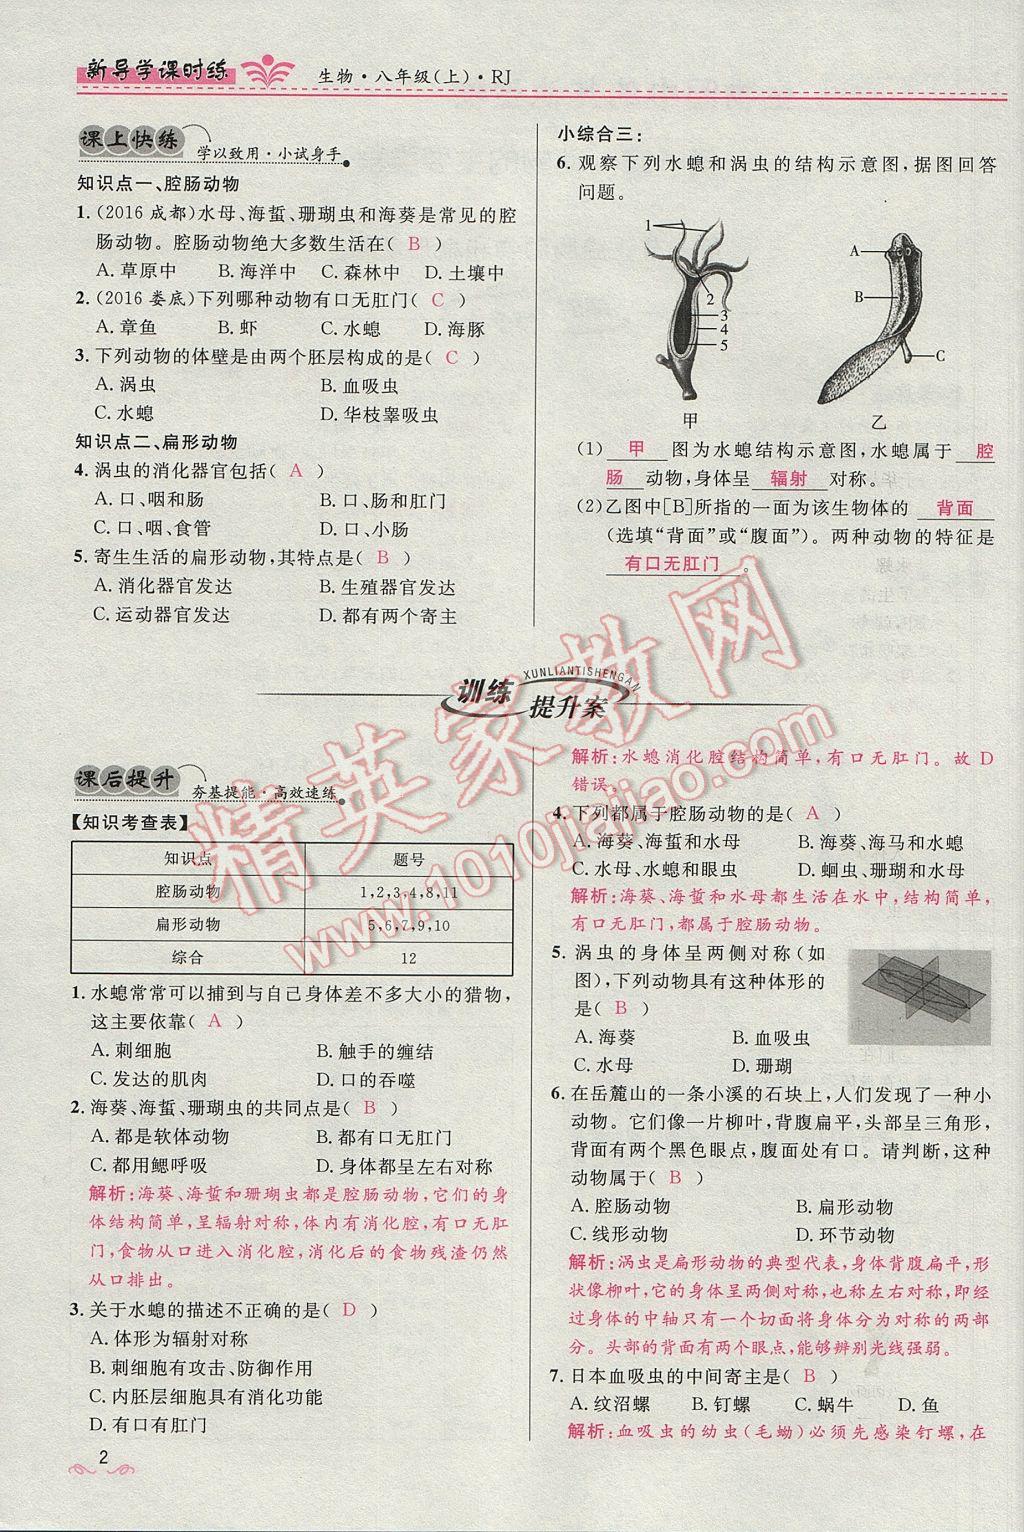 新导学课时练
生物·八年级(上)·RJ
课上快练 学以致用·小试身手
知识点一、腔肠动物
1. (2016成都)水母、海蜇、珊瑚虫和海葵是常见的腔
肠动物。腔肠动物绝大多数生活在( B )
A. 草原中 B. 海洋中 C. 森林中 D. 土壤中
2. (2016娄底)下列哪种动物有口无肛门( C )
A. 章鱼 B. 虾 C. 水螅 D. 海豚
3. 下列动物的体壁是由两个胚层构成的是( C )
A. 涡虫 B. 血吸虫
C. 水螅 D. 华枝睾吸虫
知识点二、扁形动物
4. 涡虫的消化器官包括( A )
A. 口、咽和肠 B. 口、肠和肛门
C. 口、咽、食管 D. 口、小肠
5. 寄生生活的扁形动物,其特点是( B )
A. 消化器官发达 B. 生殖器官发达
C. 运动器官发达 D. 都有两个寄主
小综合三:
6. 观察下列水螅和涡虫的结构示意图,据图回答
问题。
1
2
3
4
5
甲
A
B
C
乙
(1) 甲 图为水螅结构示意图,水螅属于 腔
肠 动物,身体呈 辐射 对称。
(2)乙图中[B]所指的一面为该生物体的 背面
(选填“背面”或“腹面”)。两种动物的特征是
有口无肛门 。
XUNLIANTISHENGAN
训练
提升案
课后提升 夯基提能·高效速练
【知识考查表】
知识点 题号
腔肠动物 1,2,3,4,8,11
扁形动物 5,6,7,9,10
综合 12
1. 水螅常常可以捕到与自己身体差不多大小的猎物,
这主要依靠( A )
A. 刺细胞 B. 触手的缠结
C. 发达的肌肉 D. 口的吞噬
2. 海葵、海蜇、珊瑚虫的共同点是( B )
A. 都是软体动物 B. 都没有肛门
C. 都用鳃呼吸 D. 身体都呈左右对称
解析:海葵、海蜇和珊瑚虫都是腔肠动物,它们的身
体结构简单,呈辐射对称,体内有消化腔,有口无肛
门,食物从口进入消化腔,消化后的食物残渣仍然
从口排出。
3. 关于水螅的描述不正确的是( D )
A. 体形为辐射对称
B. 刺细胞有攻击、防御作用
C. 内胚层细胞具有消化功能
D. 有口有肛门
解析:水螅消化腔结构简单,有口无肛门。故 D
错误。
4. 下列都属于腔肠动物的是( A )
A. 海葵、海蜇和水母 B. 海葵、海马和水螅
C. 水母、水螅和眼虫 D. 蛔虫、珊瑚和水母
解析:海葵、海蜇和水母都生活在水中,结构简单,
有口无肛门,都属于腔肠动物。
5. 涡虫的身体呈两侧对称(如
图),下列动物具有这种体形的
是( B )
A. 海葵 B. 血吸虫
C. 水母 D. 珊瑚
6. 在岳麓山的一条小溪的石块上,人们发现了一种小
动物。它们像一片柳叶,背腹扁平,头部呈三角形,
背面有两个黑色眼点,腹面处有口。请判断,这种
动物属于( B )
A. 腔肠动物 B. 扁形动物
C. 线形动物 D. 环节动物
解析:涡虫是扁形动物的典型代表,身体背腹扁平,形
状像柳叶,它的身体呈两侧对称,也称左右对称,即经
过身体的中轴只有一个切面将身体分为对称的两部
分。头部的背面有两个眼点,能够辨别光线强弱。
7. 日本血吸虫的中间寄主是( B )
A. 纹沼螺 B. 钉螺 C. 蜗牛 D. 鱼
解析:血吸虫的幼虫(毛蚴)必须先感染钉螺,在
2
精英家教网
www.1010jiajiao.com